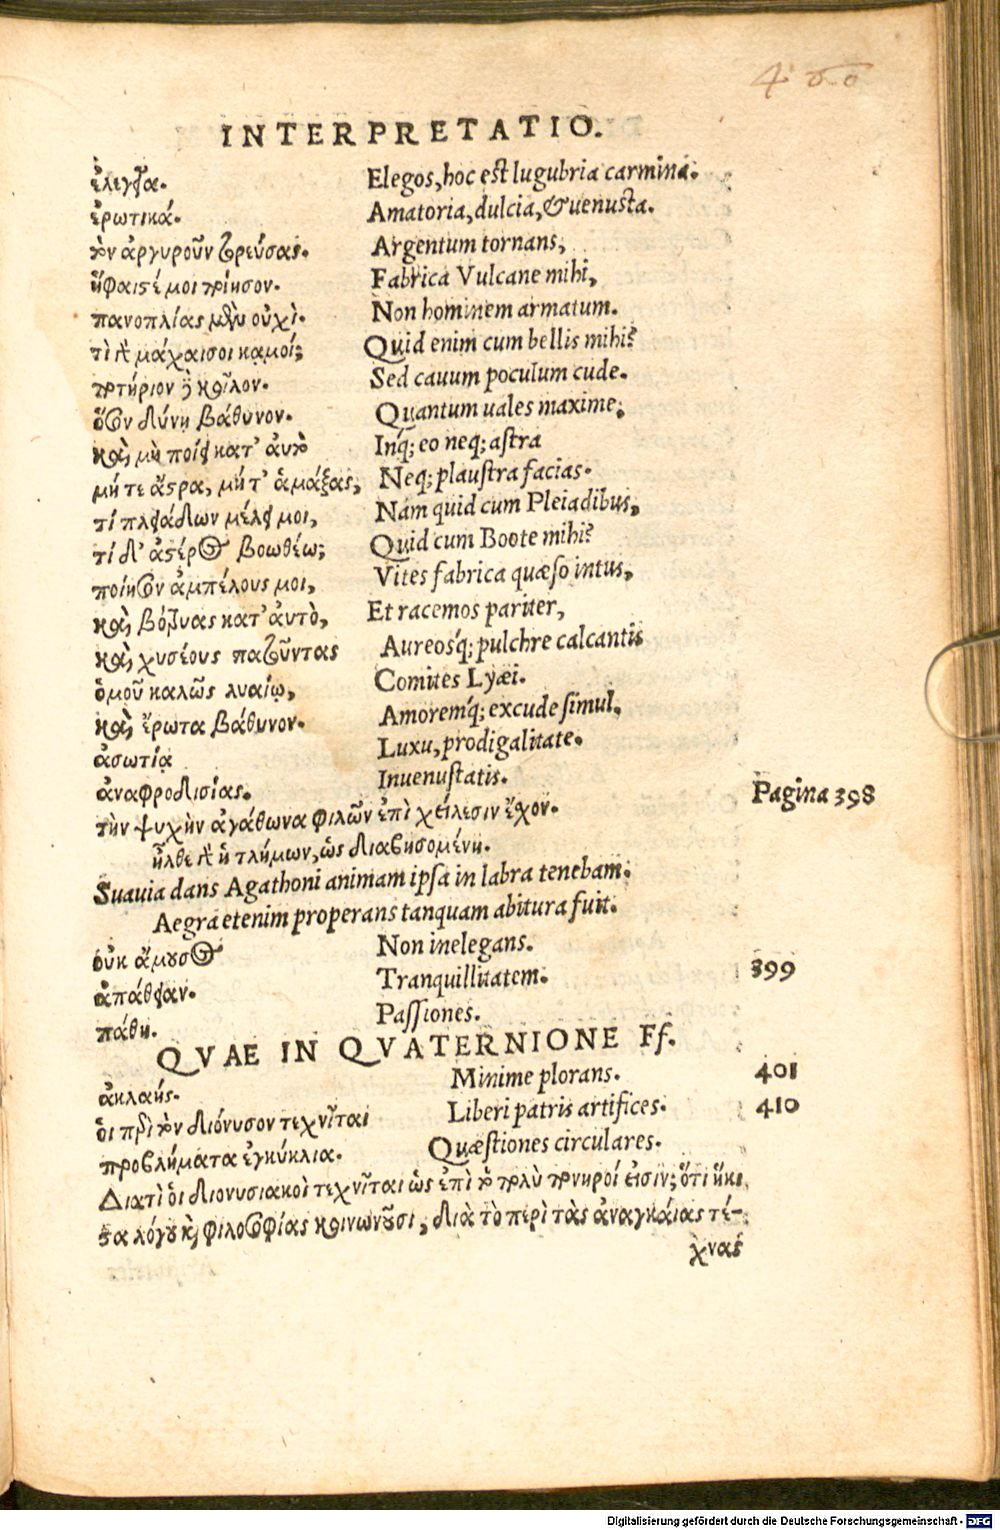 400
INTERPRETATIO.
ἐλεγεῖα. Elegos, hoc est lugubria carmina.
ἐρωτικά. Amatoria, dulcia, & uenusta.
τὸν ἀργυροῦν τορεύσας. Argentum tornans,
ἥφαιστέ μοι ποίησον. Fabrica Vulcane mihi,
πανοπλίας μὲν οὐχὶ. Non hominem armatum.
τὶ γὰρ μάχαισοι καμοί; Quid enim cum bellis mihi?
ποτήριον ἢ κοῖλον. Sed cauum poculum cude.
ὅσον δύνη βάθυνον. Quantum uales maxime,
καὶ μὴ ποίει κατ' αὐτὸ Inq́; eo neq; astra
μήτε ἄστρα, μήτ' ἁμάξας, Neq; plaustra facias.
τί πλειάδων μέλει μοι, Nám quid cum Pleiadibus,
τί δ' ἀστέρος βοωθέω; Quid cum Boote mihi?
ποίησον ἀμπέλους μοι, Vites fabrica quæso intus,
καὶ βότρυας κατ' ἀυτὸ, Et racemos pariter,
καὶ χυσέους πατοῦντας Aureosq́; pulchre calcantis
ὁμοῦ καλῶς λυαίῳ, Comites Lyæi.
καὶ ἔρωτα βάθυνον. Amoremq́; excude simul,
ἀσωτίᾳ Luxu, prodigalitate.
ἀναφροδισίας. Inuenustatis.
τὴν ψυχὴν ἀγάθωνα φιλῶν ἐπὶ χείλεσιν ἔχον. Pagina 398
ἦλθε γὰρ ἡ τλήμων, ὡς διαβησομένη.
Suauia dans Agathoni animam ipsa in labra tenebam.
Aegra etenim properans tanquam abitura fuit.
οὐκ ἄμουσος Non inelegans.
ἀπάθειαν. Tranquillitatem. 399
πάθη. Passiones.
QVAE IN QVATERNIONE Ff.
ἀκλαής. Minime plorans. 401
ὁι περὶ τὸν διόνυσον τεχνῖται Liberi patris artifices. 410
προβλήματα ἐγκύκλια. Quæstiones circulares.
Διατὶ ὁι διονυσιακοὶ τεχνῖται ὡς ἐπὶ τὸ πολὺ πονηροί εἰσιν; ὅτι ἥκι
στα λόγου καὶ φιλοσοφίας κοινωνοῦσι, διὰ τὸ περὶ τὰς ἀναγκάιας τέ-
χνας
Digitalisierung gefördert durch die Deutsche Forschungsgemeinschaft - DFG